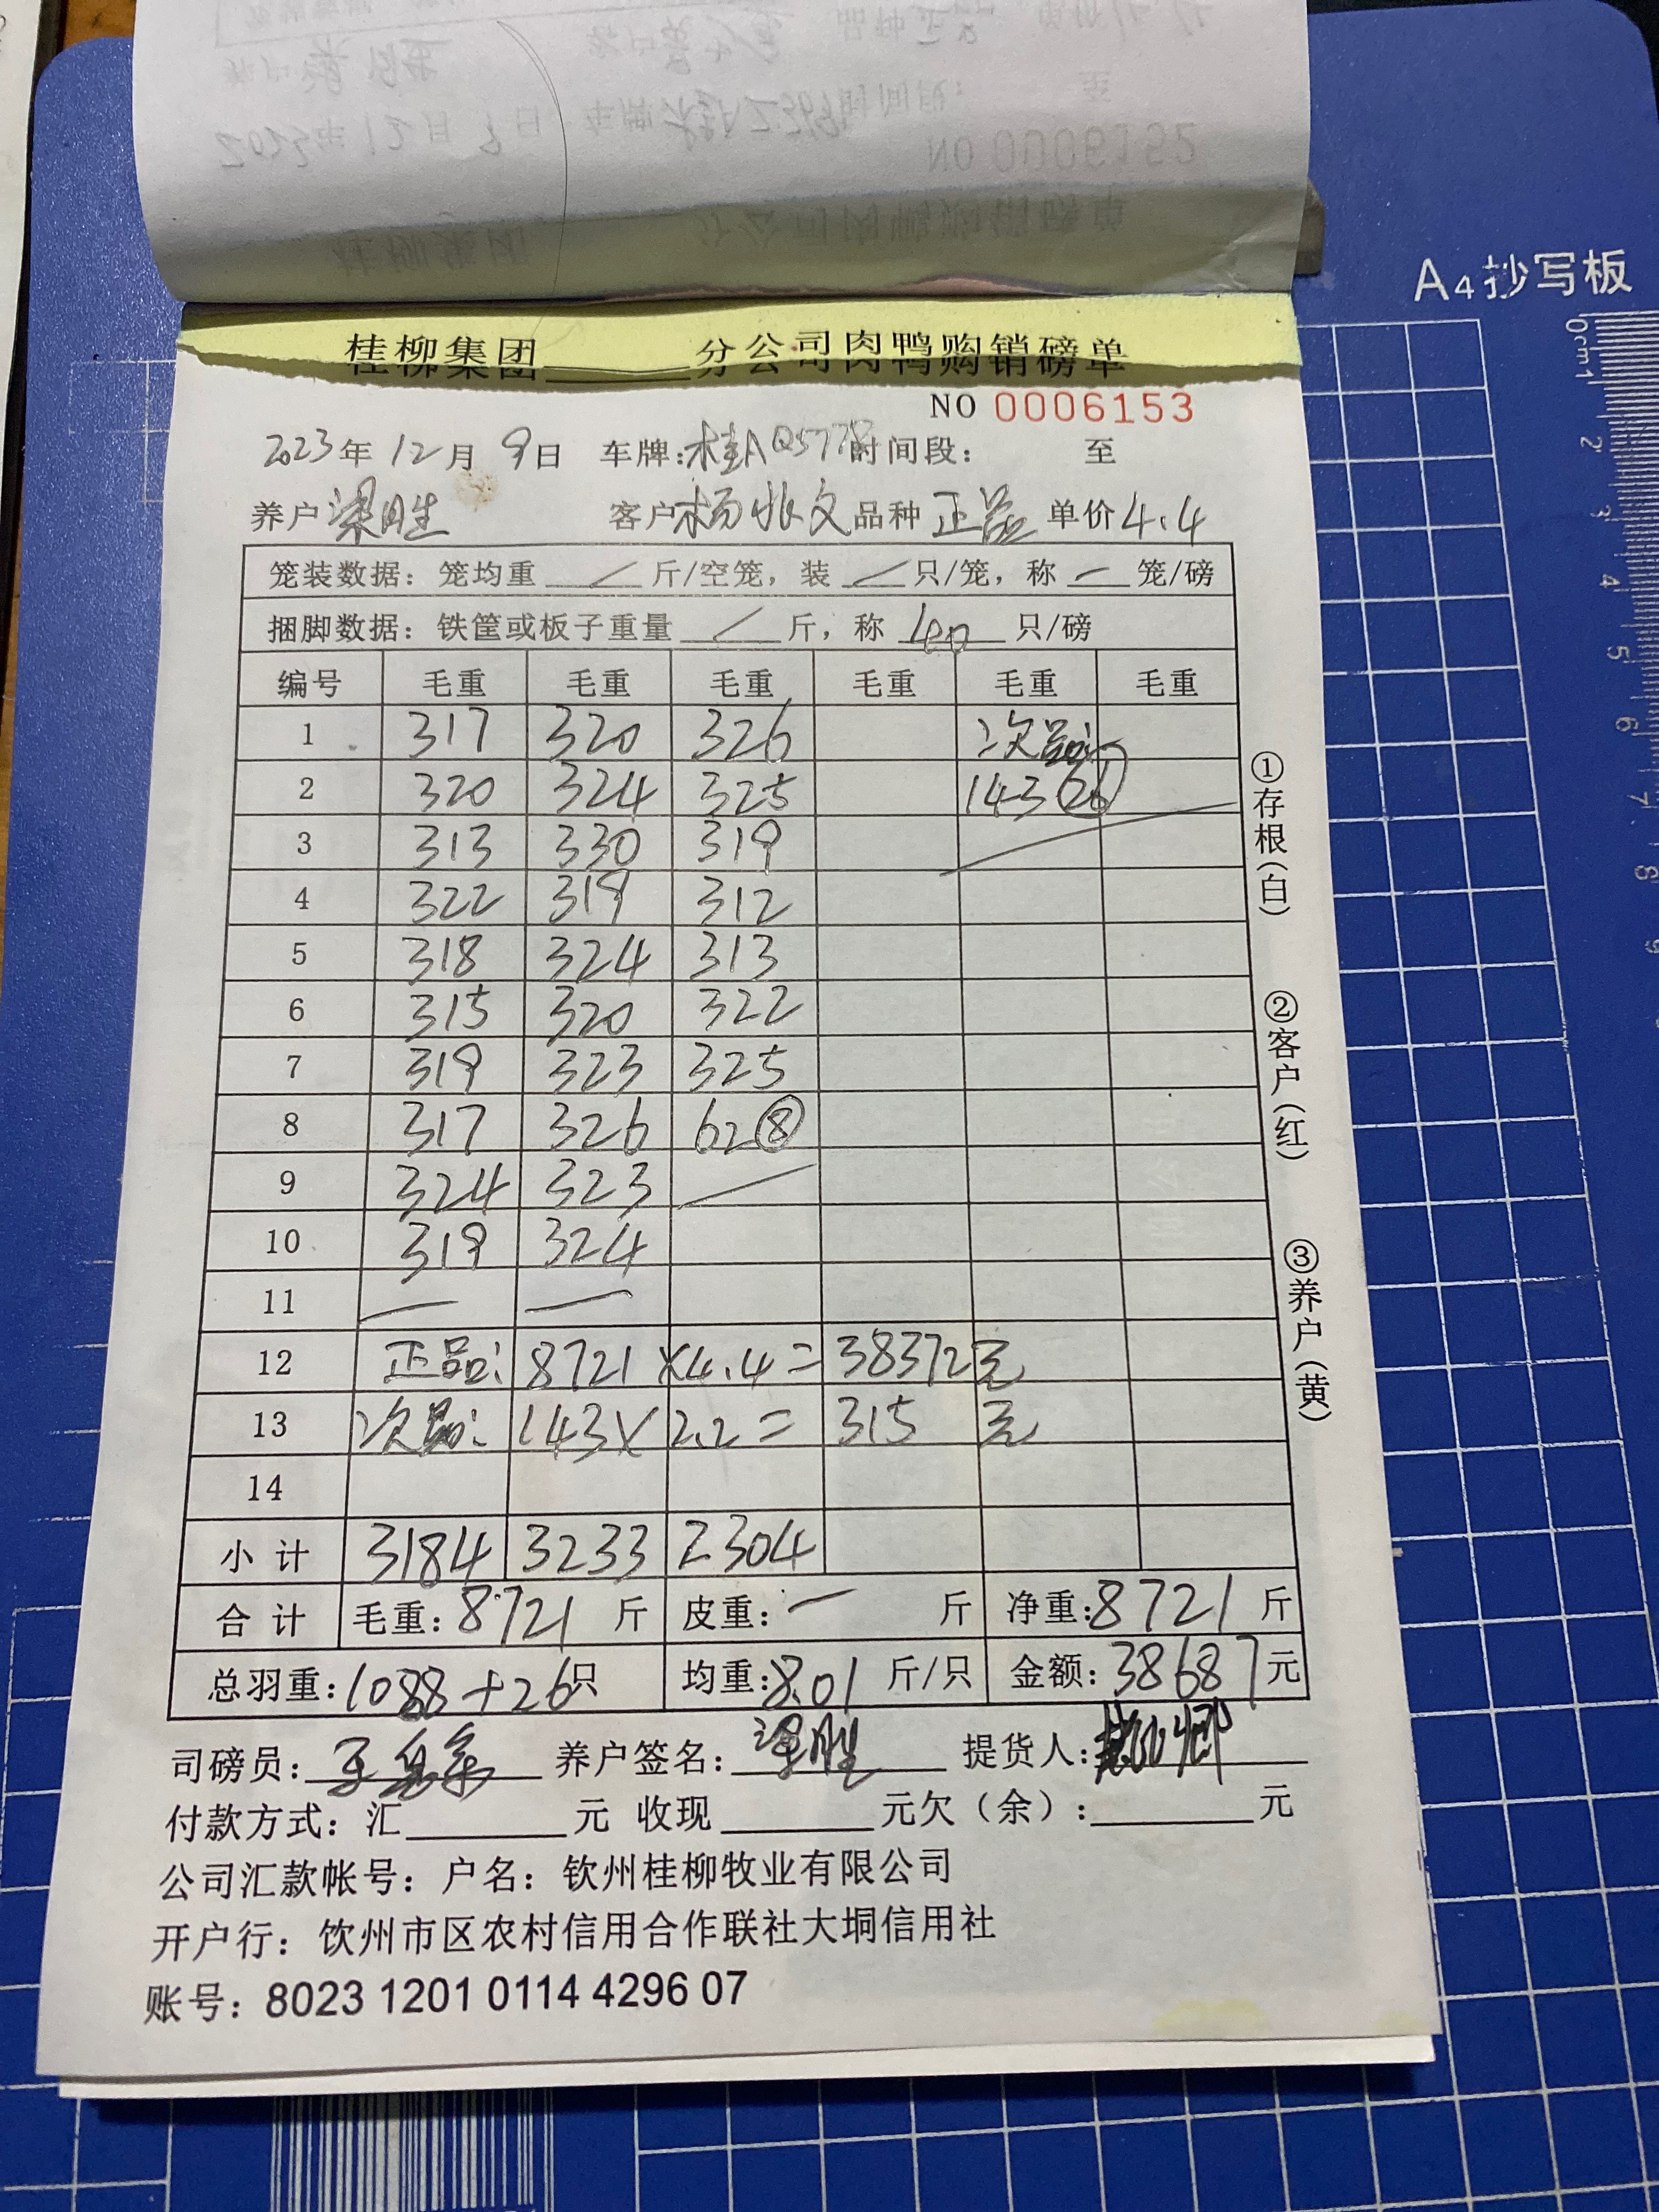 A4抄写板
桂柳集团 分公司肉鸭购销磅单
NO 0006153
2023年12月9日 车牌:桂AQ5778 时间段: 至
养户 梁胜 客户 杨 文 品种 正品 单价 4.4
笼装数据: 笼均重 / 斤/空笼, 装 / 只/笼, 称 — 笼/磅
捆脚数据: 铁筐或板子重量 / 斤, 称 40 只/磅
编号 毛重 毛重 毛重 毛重 毛重 毛重
1 317 320 326 次品:
2 320 324 325 143 (26)
3 313 330 319
4 322 319 312
5 318 324 313
6 315 320 322
7 319 323 325
8 317 326 62 (8)
9 324 323
10 319 324
11 — —
12 正品: 8721 ×4.4 = 38372元
13 次品: 143× 2.2 = 315 元
14
小计 3184 3233 2304
合计 毛重:8721 斤 皮重:— 斤 净重:8721 斤
总羽重:1088+26只 均重:8.01 斤/只 金额:38687元
司磅员: 养户签名: 梁胜 提货人:
付款方式: 汇 元 收现 元欠(余): 元
公司汇款帐号: 户名: 钦州桂柳牧业有限公司
开户行: 钦州市区农村信用合作联社大垌信用社
账号: 8023 1201 0114 4296 07
①存根(白)
②客户(红)
③养户(黄)
0cm1 2 3 4 5 6 7 8 9